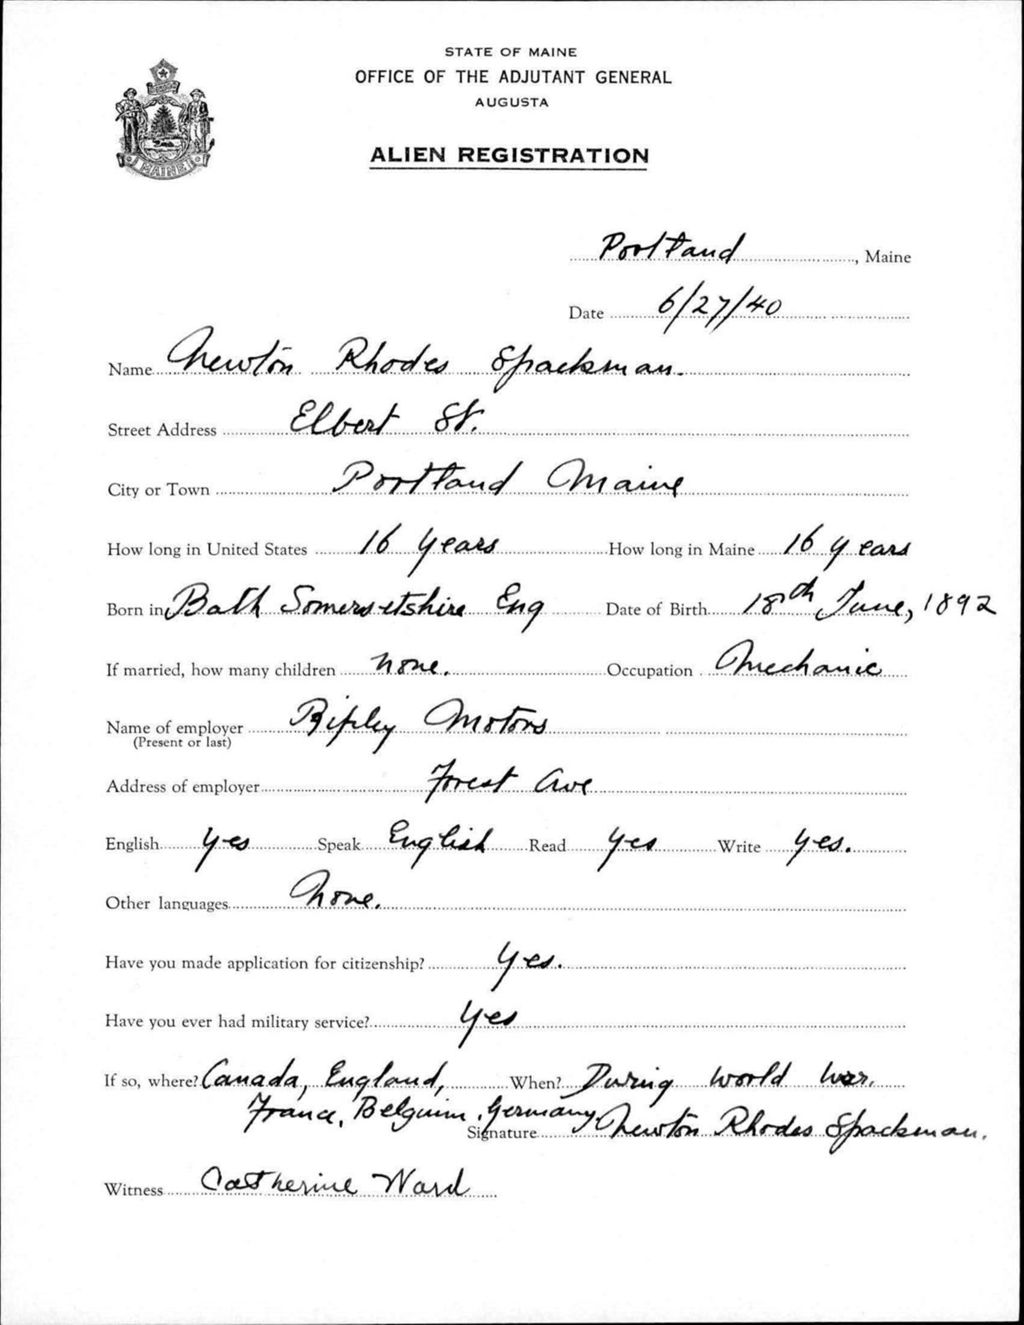 STATE OF MAINE
OFFICE OF THE ADJUTANT GENERAL
AUGUSTA
ALIEN REGISTRATION
MAINE
Portland, Maine
Date 6/27/40
Name Newton Rhodes Spackman.
Street Address Elbert St.
City or Town Portland Maine
How long in United States 16 years How long in Maine 16 years
Born in Bath Somersetshire Eng Date of Birth 18th June, 1892
If married, how many children none. Occupation Mechanic
Name of employer Ripley Motors
(Present or last)
Address of employer Forest Ave
English yes Speak English Read yes Write yes.
Other languages None.
Have you made application for citizenship? Yes.
Have you ever had military service? Yes
If so, where? Canada, England, When? During World War.
France, Belguim, Germany.
Signature Newton Rhodes Spackman.
Witness Catherine Ward